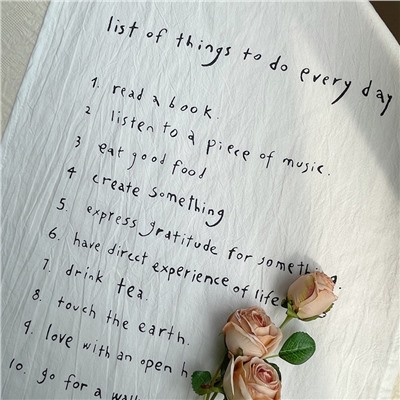 list of things to do every day
1. read a book.
2 listen to a piece of music.
3 eat good food
4 create something
5. express gratitude for something.
6. have direct experience of life
7. drink tea.
8. touch the earth.
9. love with an open h
10. go for a walk